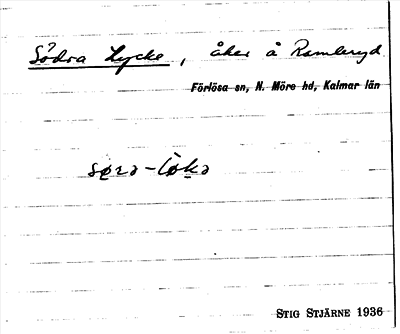 Södra Lycke, åker å Ramleryd
Förlösa sn, N. Möre hd, Kalmar län
STIG STJÄRNE 1936